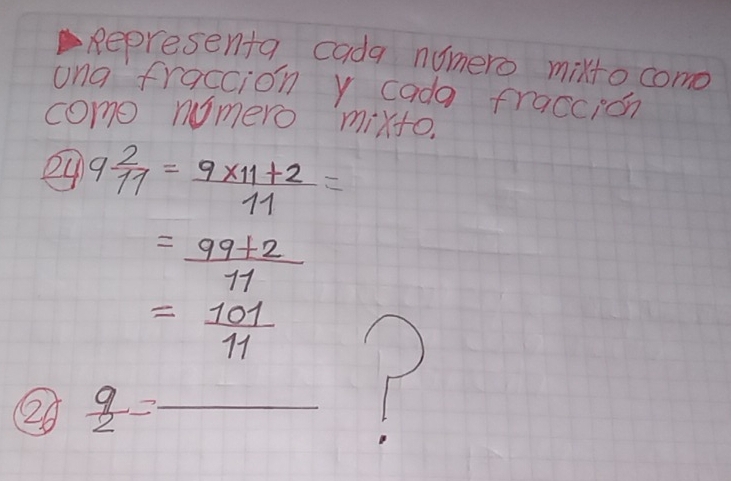 Representa cada número mixto como
una fracción y cada fracción
como número mixto.
24) 9 2/11 = 9x11+2/11 =
= 99+2/11
= 101/11
26) 9/2 = ———— ?